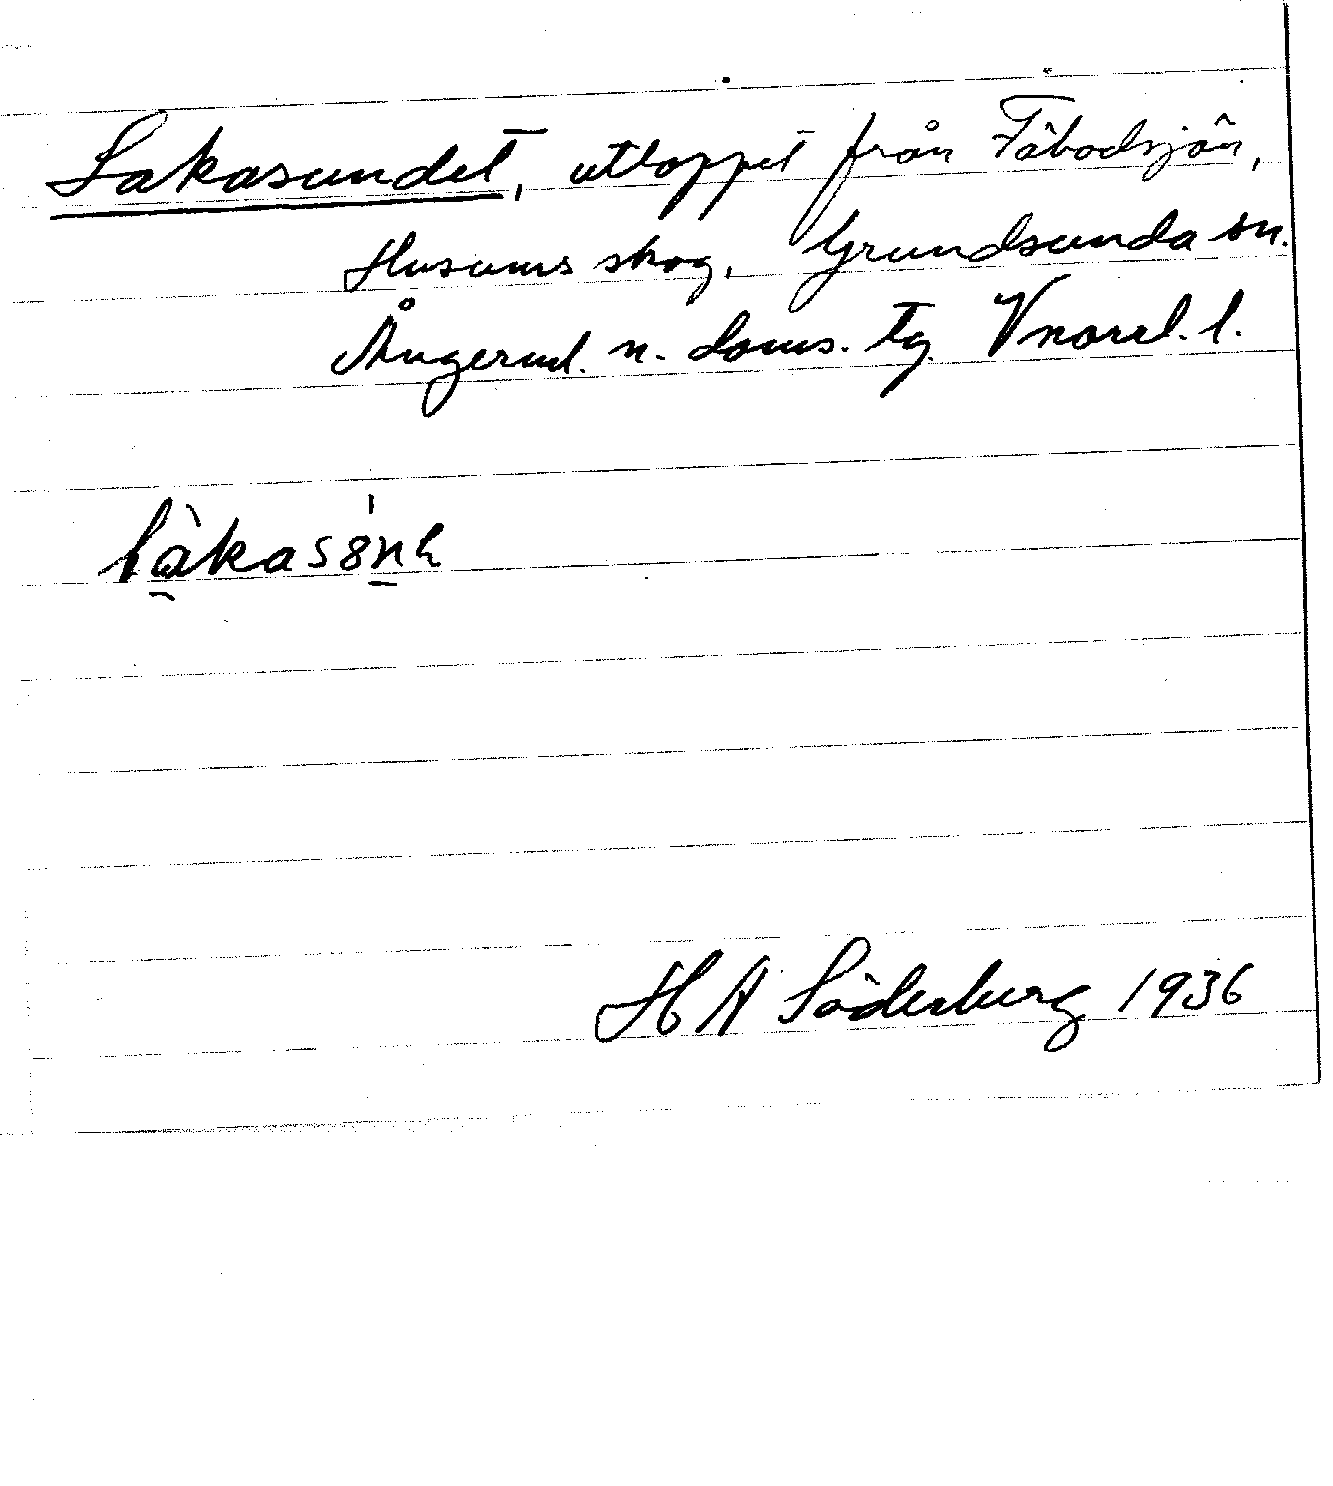 Lakasundet, utloppet från Fäbodsjön,
Husums skog, Grundsunda sn.
Ångerml. n. doms. tg. Vnorrl. l.
H A Söderberg 1936